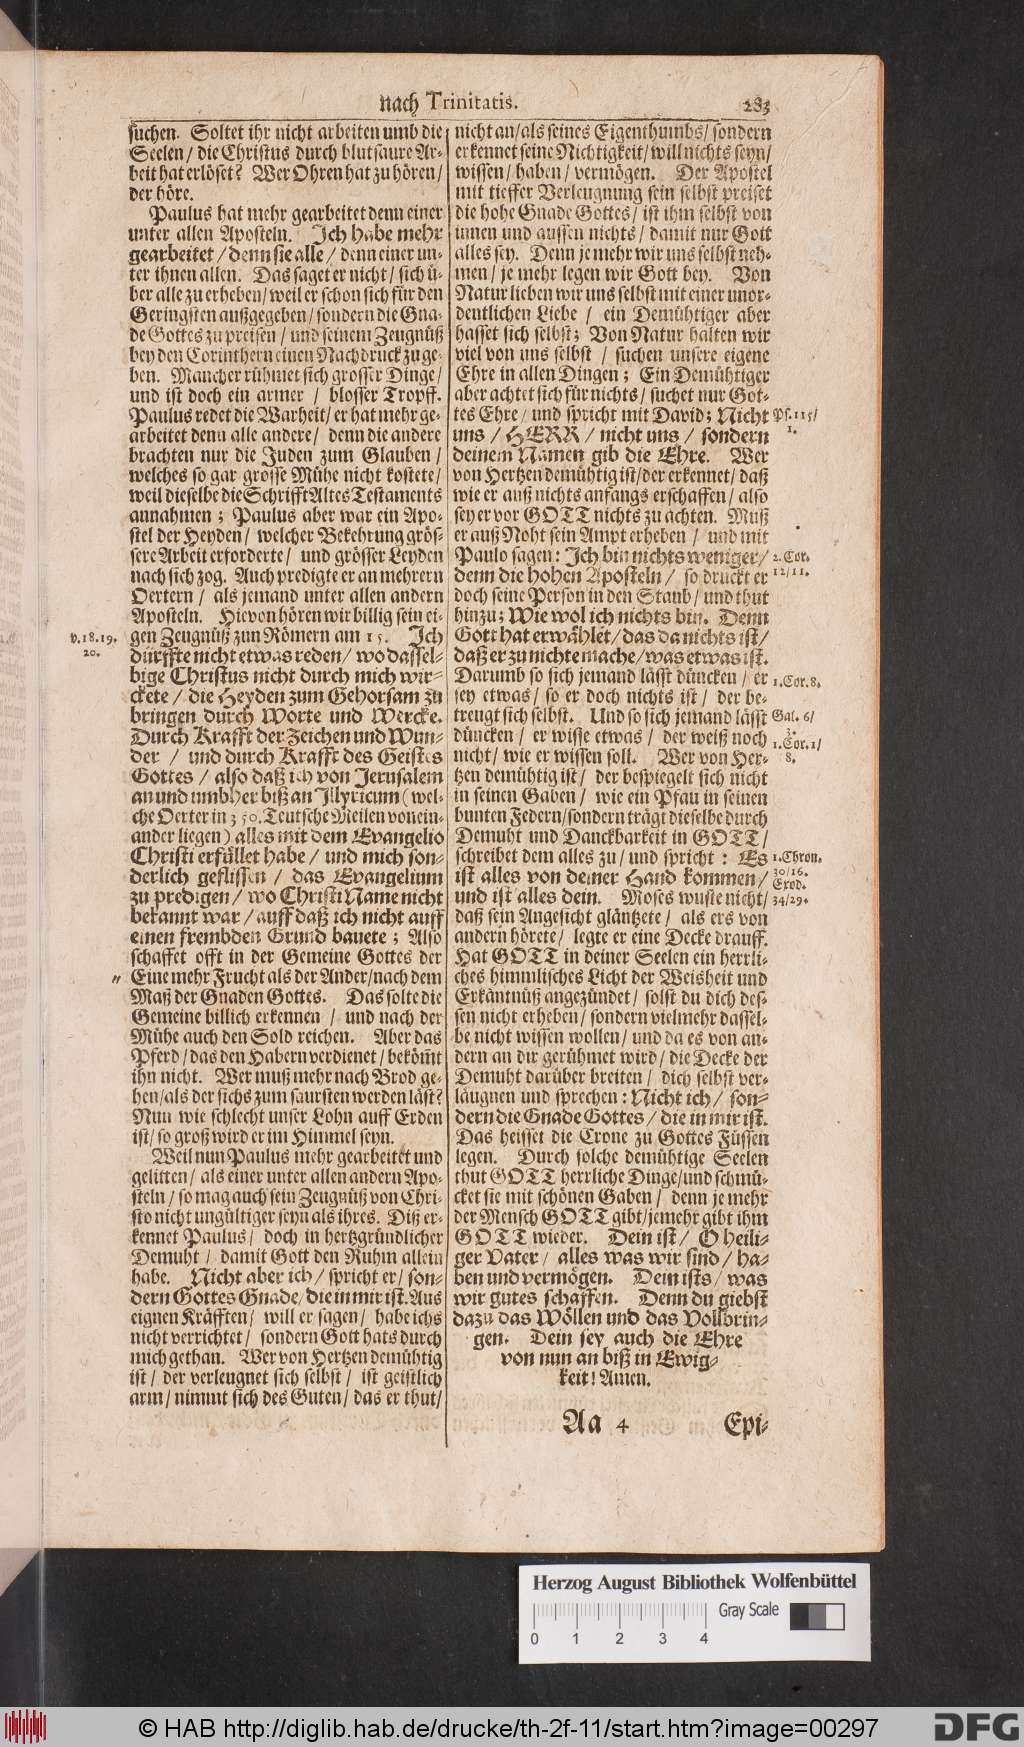 nach Trinitatis.
283
suchen. Soltet ihr nicht arbeiten umb die
Seelen / die Christus durch blutsaure Ar-
beit hat erlöset? Wer Ohren hat zu hören /
der höre.
Paulus hat mehr gearbeitet denn einer
unter allen Aposteln. Ich habe mehr
gearbeitet / denn sie alle / denn einer un-
ter ihnen allen. Das saget er nicht / sich ü-
ber alle zu erheben / weil er schon sich für den
Geringsten außgegeben / sondern die Gna-
de Gottes zu preisen / und seinem Zeugnüß
bey den Corinthern einen Nachdruck zu ge-
ben. Mancher rühmet sich grosser Dinge /
und ist doch ein armer / blosser Tropff.
Paulus redet die Warheit / er hat mehr ge-
arbeitet denn alle andere / denn die andere
brachten nur die Juden zum Glauben /
welches so gar grosse Mühe nicht kostete /
weil dieselbe die Schrifft Altes Testaments
annahmen ; Paulus aber war ein Apo-
stel der Heyden / welcher Bekehrung grös-
sere Arbeit erforderte / und grösser Leyden
nach sich zog. Auch predigte er an mehrern
Oertern / als jemand unter allen andern
Aposteln. Hievon hören wir billig sein ei-
v. 18. 19. gen Zeugnüß zun Römern am 15. Ich
20. dürffte nicht etwas reden / wo dassel-
bige Christus nicht durch mich wir-
ckete / die Heyden zum Gehorsam zu
bringen durch Worte und Wercke.
Durch Krafft der Zeichen und Wun-
der / und durch Krafft des Geistes
Gottes / also daß ich von Jerusalem
an und umbher biß an Illyricum (wel-
che Oerter in 350. Teutsche Meilen von ein-
ander liegen) alles mit dem Evangelio
Christi erfüllet habe / und mich son-
derlich geflissen / das Evangelium
zu predigen / wo Christi Name nicht
bekannt war / auff daß ich nicht auff
einen frembden Grund bauete ; Also
schaffet offt in der Gemeine Gottes der
" Eine mehr Frucht als der Ander / nach dem
Maß der Gnaden Gottes. Das solte die
Gemeine billich erkennen / und nach der
Mühe auch den Sold reichen. Aber das
Pferd / das den Habern verdienet / bekömt
ihn nicht. Wer muß mehr nach Brod ge-
hen / als der sichs zum saursten werden läst?
Nun wie schlecht unser Lohn auff Erden
ist / so groß wird er im Himmel seyn.
Weil nun Paulus mehr gearbeitet und
gelitten / als einer unter allen andern Apo-
steln / so mag auch sein Zeugnüß von Chri-
sto nicht ungültiger seyn als ihres. Diß er-
kennet Paulus / doch in hertzgründlicher
Demuht / damit Gott den Ruhm allein
habe. Nicht aber ich / spricht er / son-
dern Gottes Gnade / die in mir ist. Aus
eignen Kräfften / will er sagen / habe ichs
nicht verrichtet / sondern Gott hats durch
mich gethan. Wer von Hertzen demühtig
ist / der verleugnet sich selbst / ist geistlich
arm / nimmt sich des Guten / das er thut /
nicht an / als seines Eigenthumbs / sondern
erkennet seine Nichtigkeit / will nichts seyn /
wissen / haben / vermögen. Der Apostel
mit tieffer Verleugnung sein selbst preiset
die hohe Gnade Gottes / ist ihm selbst von
innen und aussen nichts / damit nur Gott
alles sey. Denn je mehr wir uns selbst neh-
men / je mehr legen wir Gott bey. Von
Natur lieben wir uns selbst mit einer unor-
dentlichen Liebe / ein Demühtiger aber
hasset sich selbst ; Von Natur halten wir
viel von uns selbst / suchen unsere eigene
Ehre in allen Dingen ; Ein Demühtiger
aber achtet sich für nichts / suchet nur Got-
tes Ehre / und spricht mit David ; Nicht Ps. 115/
uns / HERR / nicht uns / sondern 1.
deinem Namen gib die Ehre. Wer
von Hertzen demühtig ist / der erkennet / daß
wie er auß nichts anfangs erschaffen / also
sey er vor GOTT nichts zu achten. Muß
er auß Noht sein Ampt erheben / und mit
Paulo sagen : Ich bin nichts weniger / 2. Cor.
denn die hohen Aposteln / so druckt er 12/11.
doch seine Person in den Staub / und thut
hinzu ; Wie wol ich nichts bin. Denn
Gott hat erwählet / das da nichts ist /
daß er zu nichte mache / was etwas ist.
Darumb so sich jemand lässt düncken / er 1. Cor. 8.
sey etwas / so er doch nichts ist / der be-
treugt sich selbst. Und so sich jemand lässt Gal. 6/
3.
düncken / er wisse etwas / der weiß noch 1. Cor. 1/
nicht / wie er wissen soll. Wer von Her- 8.
tzen demühtig ist / der bespiegelt sich nicht
in seinen Gaben / wie ein Pfau in seinen
bunten Federn / sondern trägt dieselbe durch
Demuht und Danckbarkeit in GOTT /
schreibet dem alles zu / und spricht : Es 1. Chron.
ist alles von deiner Hand kommen / 30/16.
Exod.
und ist alles dein. Moses wuste nicht / 34/29.
daß sein Angesicht gläntzete / als ers von
andern hörete / legte er eine Decke drauff.
Hat GOTT in deiner Seelen ein herrli-
ches himmlisches Licht der Weisheit und
Erkäntnüß angezündet / solst du dich des-
sen nicht erheben / sondern vielmehr dassel-
be nicht wissen wollen / und da es von an-
dern an dir gerühmet wird / die Decke der
Demuht darüber breiten / dich selbst ver-
läugnen und sprechen : Nicht ich / son-
dern die Gnade Gottes / die in mir ist.
Das heisset die Crone zu Gottes Füssen
legen. Durch solche demühtige Seelen
thut GOTT herrliche Dinge / und schmü-
cket sie mit schönen Gaben / denn je mehr
der Mensch GOTT gibt / je mehr gibt ihm
GOTT wieder. Dein ist / O heili-
ger Vater / alles was wir sind / ha-
ben und vermögen. Dein ists / was
wir gutes schaffen. Denn du giebst
dazu das Wöllen und das Vollbrin-
gen. Dein sey auch die Ehre
von nun an biß in Ewig-
keit! Amen.
Aa 4 Epi-
Herzog August Bibliothek Wolfenbüttel
Gray Scale
0 1 2 3 4
© HAB http://diglib.hab.de/drucke/th-2f-11/start.htm?image=00297
DFG